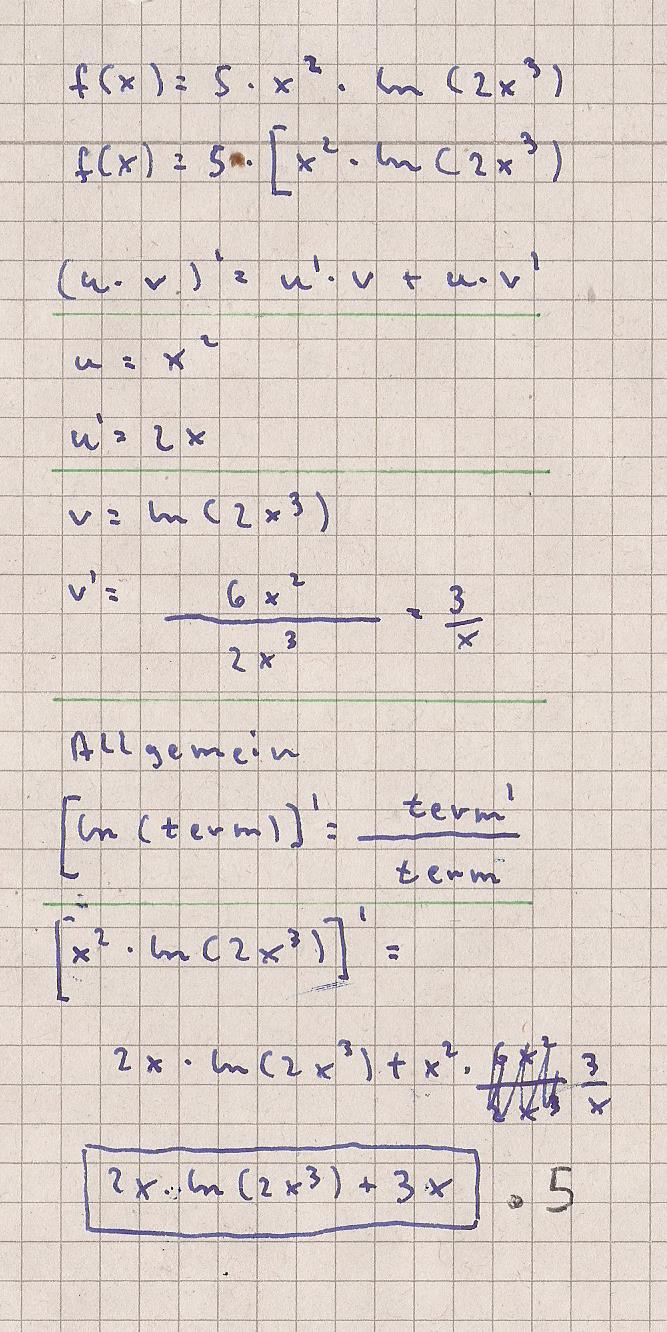 f(x) = 5 · x² · ln (2x³)
f(x) = 5 · [x² · ln (2x³)
(u · v)' = u' · v + u · v'
u = x²
u' = 2x
v = ln (2x³)
v' = 6x² / 2x³ = 3/x
Allgemein
[ln (term)]' = term' / term
[x² · ln (2x³)]' =
2x · ln (2x³) + x² · 3/x
2x · ln (2x³) + 3·x · 5